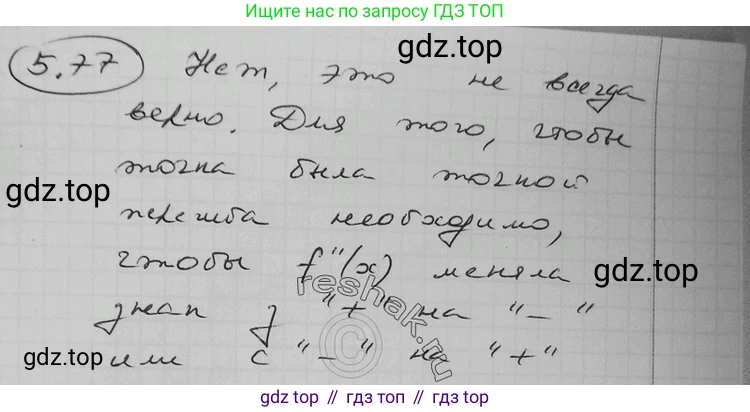 Ищите нас по запросу ГДЗ ТОП
gdz.top
5.77 Нет, это не всегда
верно. Для того, чтобы
точка была точкой
gdz.top
перегиба необходимо,
чтобы f''(x) меняла
gdz.top
reshak.ru
знак з "+" на "–"
gdz.top
или с "–" на "+"
gdz.top // гдз топ // gdz.top